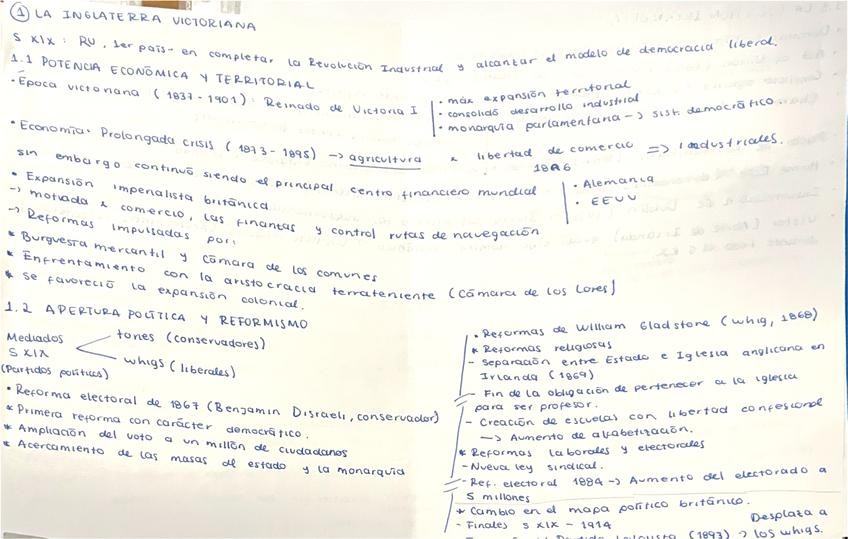 ① LA INGLATERRA VICTORIANA
S XIX: RU, 1er país en completar la Revolución Industrial y alcanzar el modelo de democracia liberal.
1.1 POTENCIA ECONÓMICA Y TERRITORIAL
· Época victoriana (1837-1901): Reinado de Victoria I
· máx expansión territorial
· consolidó desarrollo industrial
· monarquía parlamentaria -> sist. democrático.
· Economía. Prolongada crisis (1873-1895) -> agricultura x libertad de comercio => industriales.
1846
sin embargo continuó siendo el principal centro financiero mundial
· Alemania
· EEUU
* Expansión imperialista británica
-> motivada x comercio, las finanzas y control rutas de navegación
-> Reformas impulsadas por:
* Burguesía mercantil y cámara de los comunes
* Enfrentamiento con la aristocracia terrateniente (Cámara de los Lores)
* Se favoreció la expansión colonial.
1.2 APERTURA POLÍTICA Y REFORMISMO
Mediados
S XIX
(Partidos políticos)
tories (conservadores)
whigs (liberales)
· Reforma electoral de 1867 (Benjamin Disraeli, conservador)
* Primera reforma con carácter democrático.
* Ampliación del voto a un millón de ciudadanos
* Acercamiento de las masas al estado y la monarquía
· Reformas de William Gladstone (whig, 1868)
* Reformas religiosas
- Separación entre Estado e Iglesia anglicana en
Irlanda (1869)
- Fin de la obligación de pertenecer a la iglesia
para ser profesor.
- Creación de escuelas con libertad confesional
-> Aumento de alfabetización.
* Reformas laborales y electorales
- Nueva ley sindical.
- Ref. electoral 1884 -> Aumento del electorado a
5 millones
* Cambio en el mapa político británico.
- Finales s XIX - 1914
Desplaza a
(1893) > los whigs.